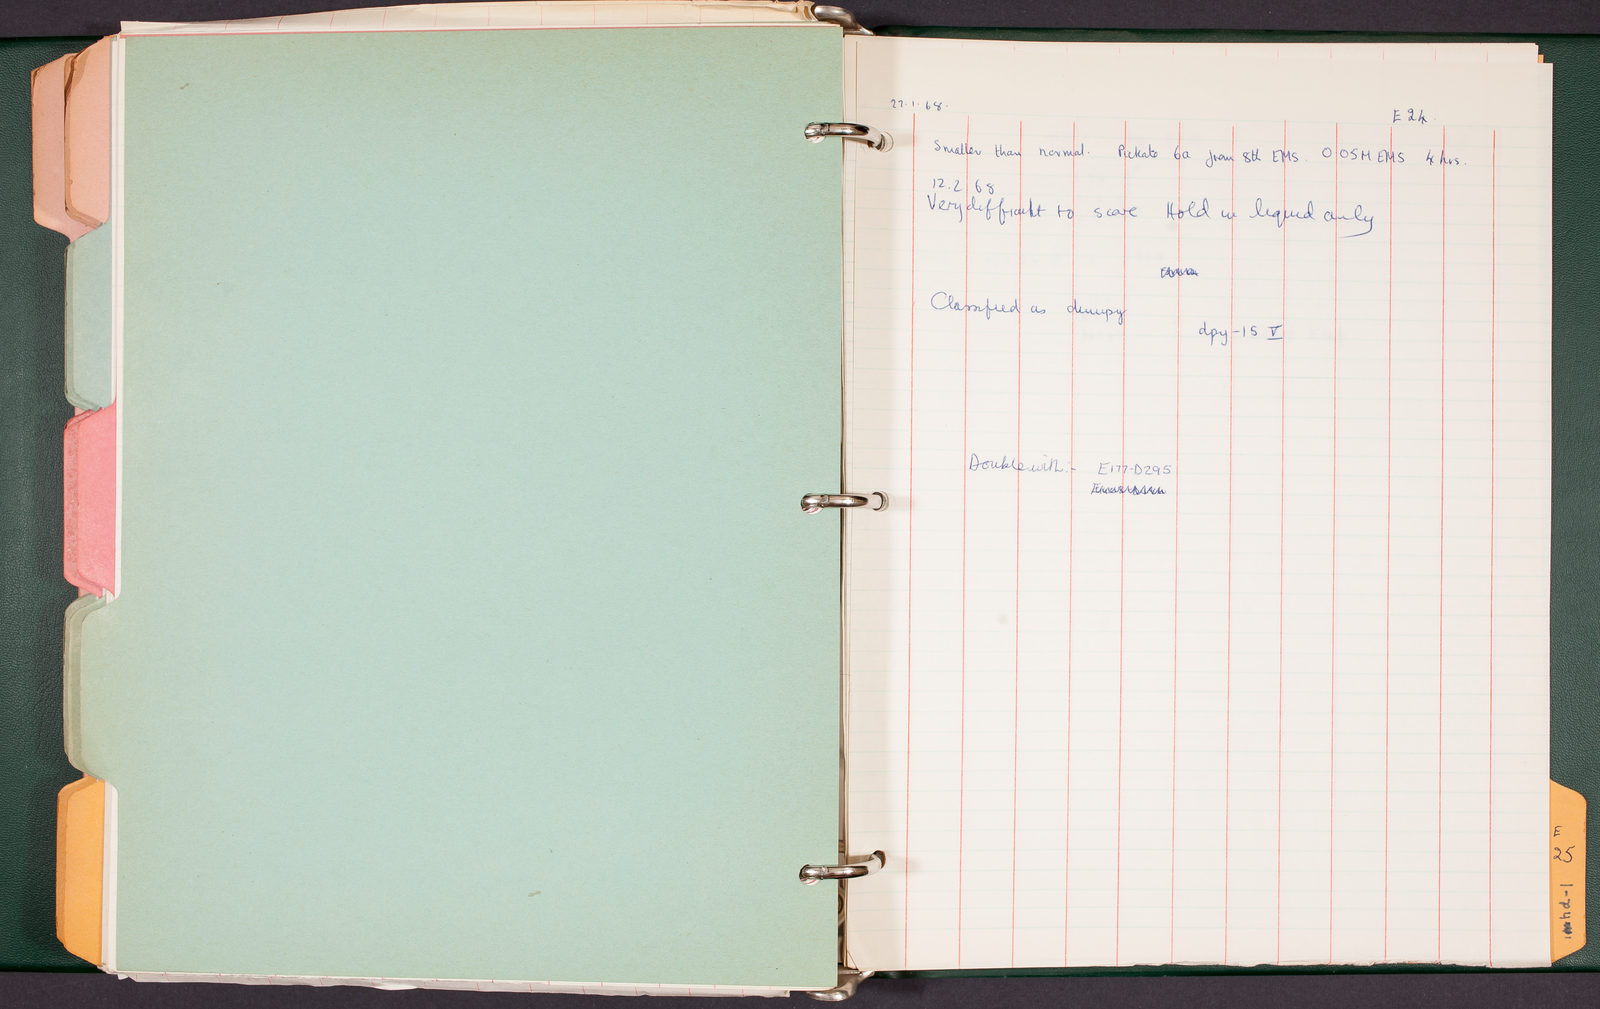 27.1.68.
E 24.
Smaller than normal. Pickate 6a from 8th EMS. 0.05M EMS 4 hrs.
12.2.68
Very difficult to score Hold in liquid only
Classified as dumpy
dpy-15 V
Double with:- E177-D295
E
25
hd-1